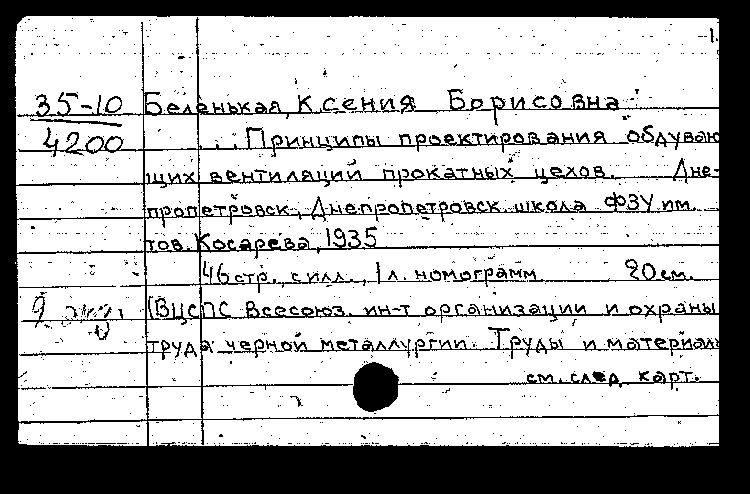 -1.
35-10
4200
Беленькая, Ксения Борисовна
... Принципы проектирования обдуваю
щих вентиляций прокатных цехов. Дне-
пропетровск, Днепропетровск. школа ФЗУ им.
тов. Косарева, 1935
46 стр., с илл., 1 л. номограмм 20 см.
9 экз.
(ВЦСПС Всесоюз. ин-т организации и охраны
труда черной металлургии. Труды и материал
см. след. карт.